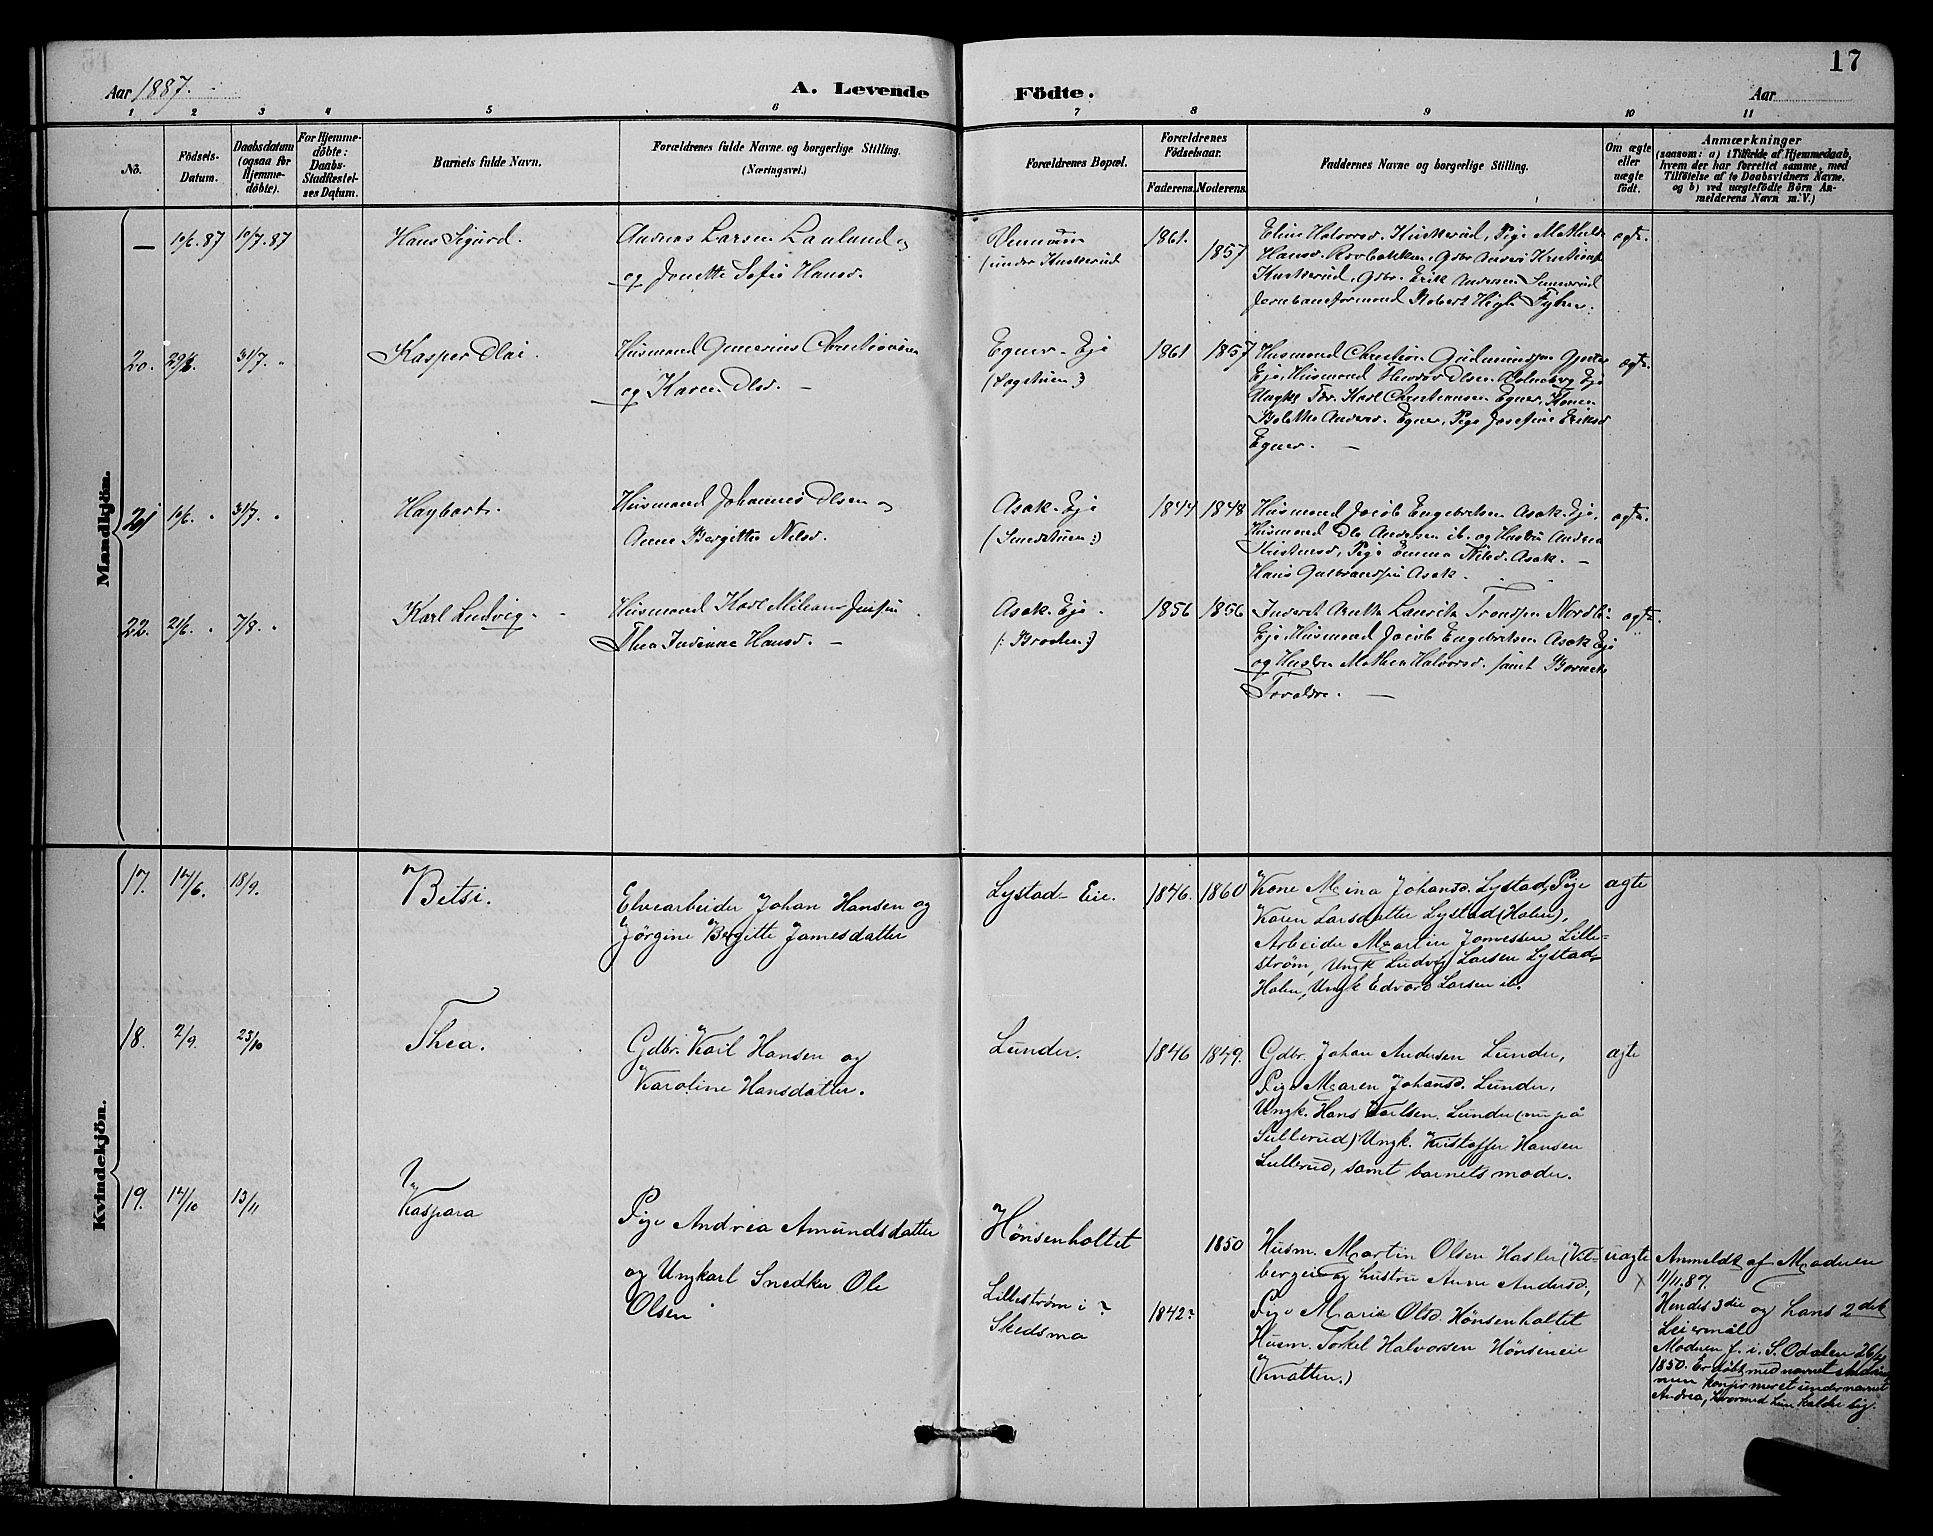 17
Aar 1887.
A. Levende Födte.
Aar
1 2 3 4 5 6 7 8 9 10 11
No.
Födsels-Datum.
Daabsdatum (ogsaa for Hjemmedöbte).
For Hjemmedöbte: Daabs-Stadfæstelses Datum.
Barnets fulde Navn.
Forældrenes fulde Navne og borgerlige Stilling.
(Næringsvei.)
Forældrenes Bopæl.
Forældrenes Födselsaar.
Faderens. Moderens.
Faddernes Navne og borgerlige Stilling.
Om ægte eller uægte födt.
Anmærkninger
(saasom: a) i Tilfælde af Hjemmedaab,
hvem der har forrettet samme, med
Tilföielse af to Daabsvidners Navne,
og b) ved uægtefödte Börn An-
melderens Navn m. V.)
Mandkjön.
— 10/6. 87 10/7. 87
Hans Sigurd.
Andreas Larsen
og Jonette Sofie Hansd.
(under Kuskerud
1861. 1857
Eline Halvorsd. Kuskerud, Pige Mathilde
Hansd. Gdbr. Anders Kristians.
Kuskerud, Gdbr. Erik Andersen
Jernbaneformand Robert
ægte.
20. 29/6. 31/7. "
Kasper Olai.
Husmand Gunerius Christiansen
og Karen Olsd. —
Egner-Eje
1861 1857
Husmand Christian Gudmundsen
Eje, Husmand Theodor Olsen Eje
Ungk. Karl Christiansen Egner, Konen
Bolette Andersd. Egner, Pige Josefine Eriksd
Egner. —
ægte.
21 10/6. " 31/7. "
Haybart.
Husmand Johannes Olsen og
Anne Bergitte Nilsd.
Asak-Eje
(Smedstuen:)
1844 1848
Husmand Jacob Engebretsen Asak-Eje,
Husmand Ole Andersen ib. og Hustru Andrea
Kristensd, Pige Emma Nilsd. Asak. —
Hans Gulbrandsen Asak.
ægte.
22. 2/6. " 7/8. "
Karl Ludvig.
Husmand Karl Jensen
Thea Indianne Hansd. —
Asak-Eje.
(:Braaten:)
1856 1856
Lauritz Trondsen Nordli-
Eje, Husmand Jacob Engebretsen Asak Eje
og Hustru Mathea Halvorsd. samt Barnets
Forældre. —
ægte.
Kvindekjön.
17. 17/6. 18/9.
Betsi.
Elvearbeider Johan Hansen og
Jörgine Bergitte Jamesdatter
Lystad-Eie.
1846. 1860
Kone Mina Johansd. Lystad, Pige
Karen Larsdatter Lystad (Holen),
Arbeider Martin Lille-
ström, Ungk. Ludvig Larsen Lystad-
Holen, Ungk. Edvard Larsen ib.
ægte
18. 2/9. 23/10
Thea.
Gdbr. Karl Hansen og
Karoline Hansdatter.
Lunder.
1846 1849.
Gdbr. Johan Andersen Lunder,
Pige Maren Johansd. Lunder,
Ungk. Hans Karlsen Lunder (nu på
Sullerud) Ungk. Kristoffer Hansen
Sullerud, samt barnets moder.
ægte
19. 14/10 13/11
Kaspara
Pige Andrea Amundsdatter
og Ungkarl Snedker Ole
Olsen
Hönsenholtet
Lilleström i ?
Skedsmo
1842? 1850
Husm. Martin Olsen Hasler (Vit-
berget) og hustru Anne Andersd,
Pige Marie Olsd. Hönsenholtet
Husm. Torkel Halvorsen Hönseneie
(Knatten.)
uægte
x
Anmeldt af Moderen
11/11. 87.
Hendes 3die og hans 2det
Leiermål
Moderen f. i S. Odalen 26/
1850. Er döbt med navnet
men konfirmeret under navnet
Andrea, hvormed hun kalder sig.